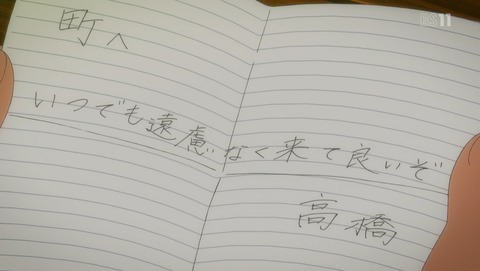 町へ
いつでも遠慮なく来て良いぞ
高橋
BS11